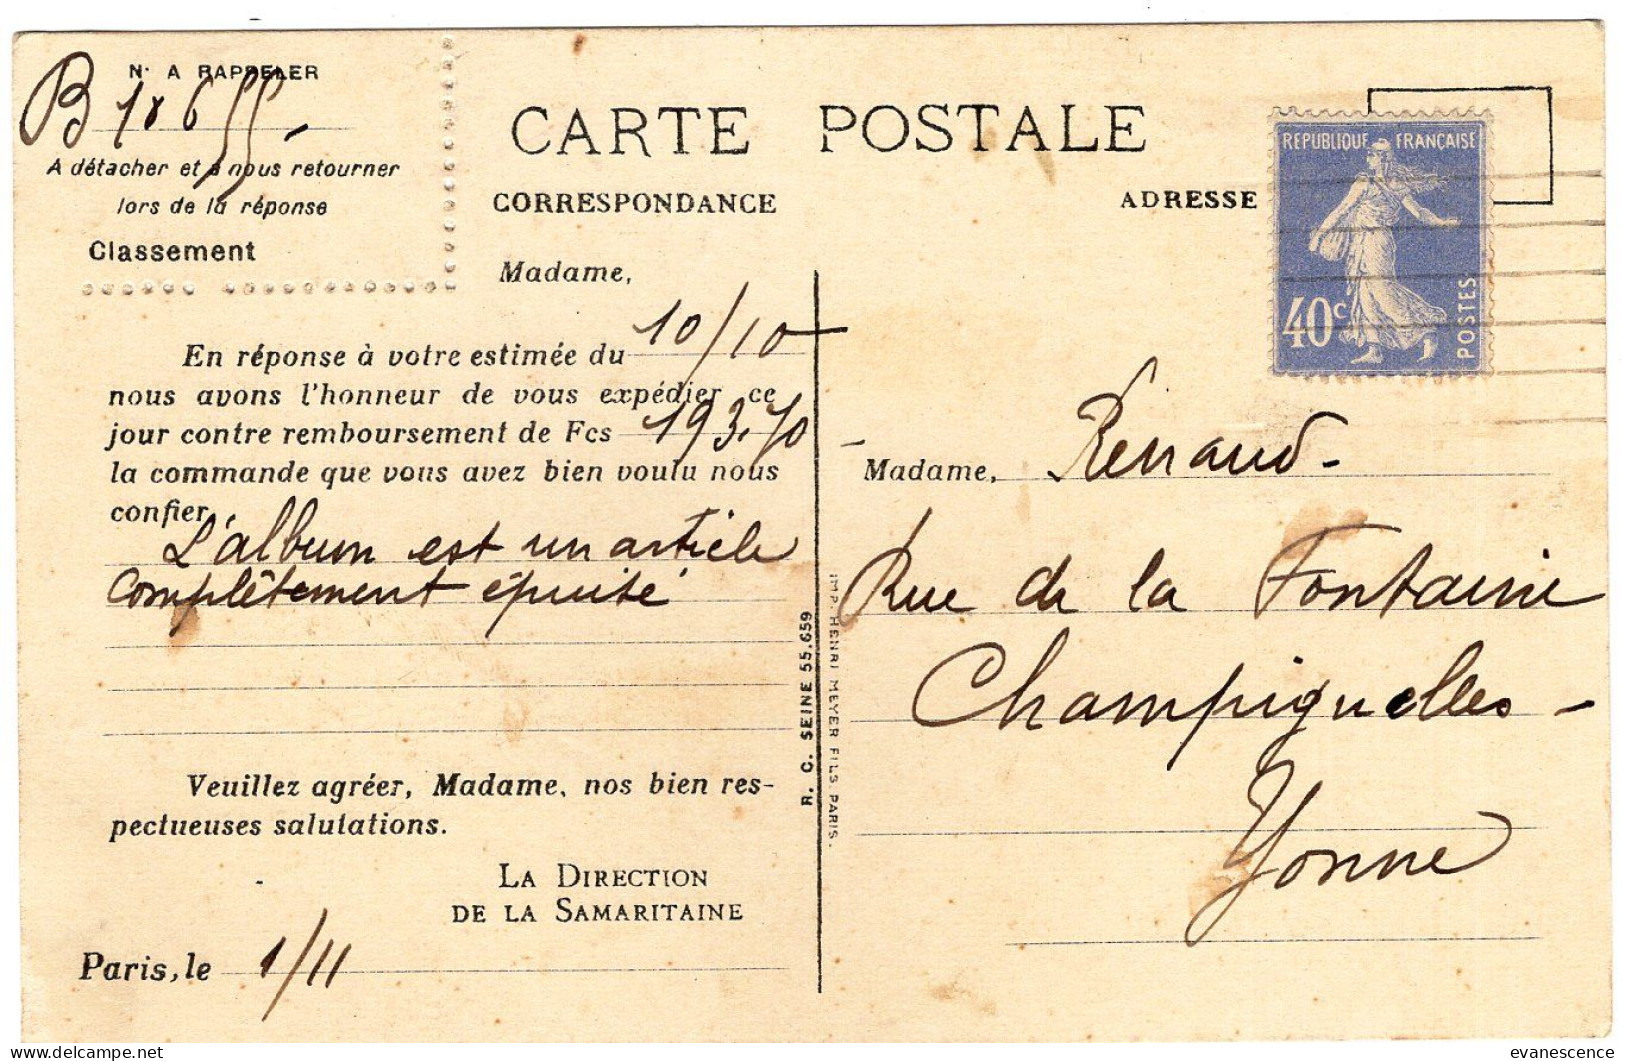 N° A RAPPELER
B 18655.
A détacher et à nous retourner
lors de la réponse
Classement
CARTE POSTALE
CORRESPONDANCE
ADRESSE
REPUBLIQUE FRANÇAISE
40c
POSTES
Madame,
En réponse à votre estimée du 10/10
nous avons l'honneur de vous expédier ce
jour contre remboursement de Fcs 193.70
la commande que vous avez bien voulu nous
confier.
L'album est un article
complêtement épuisé
Veuillez agréer, Madame, nos bien res-
pectueuses salutations.
LA DIRECTION
DE LA SAMARITAINE
Paris, le 1/11
R. C. SEINE 55.659
IMP. HENRI MEYER FILS. PARIS.
Madame, Renaud -
Rue de la Fontaine
Champignelles -
Yonne
evanescence